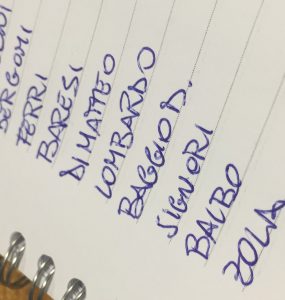 BERGOMI
FERRI
BARESI
DI MATTEO
LOMBARDO
BAGGIO D.
SIGNORI
BALBO
ZOLA